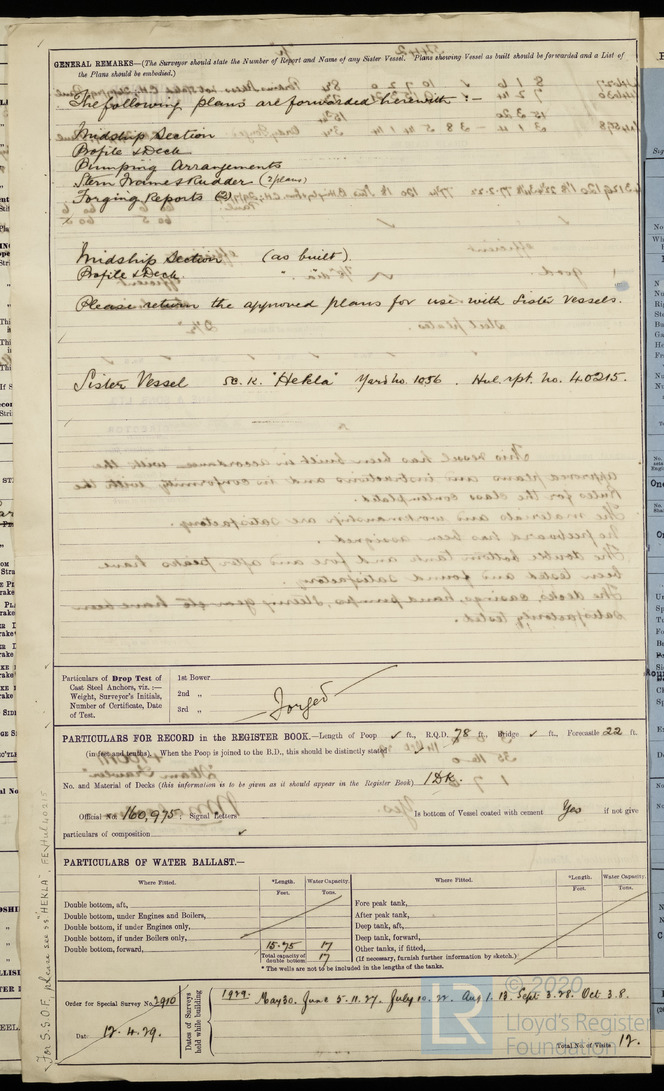 GENERAL REMARKS—(The Surveyor should state the Number of Report and Name of any Sister Vessel. Plans showing Vessel as built should be forwarded and a List of
the Plans should be embodied.)
The following plans are forwarded herewith :—
Midship Section
Profile & Deck
Pumping Arrangements
Stern Frame & Rudder (2 plans)
Forging Reports
Midship Section (as built).
Profile & Deck. " "
Please return the approved plans for use with Sister Vessels.
Sister Vessel SC. K. "Hekla" Yard No. 1056 . Hul. rpt. No. 40215.
Particulars of Drop Test of
Cast Steel Anchors, viz. :—
Weight, Surveyor's Initials,
Number of Certificate, Date
of Test.
1st Bower
2nd „
3rd „
Forged
PARTICULARS FOR RECORD in the REGISTER BOOK.—Length of Poop ✓ ft., R.Q.D. 78 ft., Bridge ✓ ft., Forecastle 22 ft.
(in feet and tenths). When the Poop is joined to the B.D., this should be distinctly stated
No. and Material of Decks (this information is to be given as it should appear in the Register Book) 1 DK.
Official No. 160,975; Signal Letters Is bottom of Vessel coated with cement Yes if not give
particulars of composition ✓
PARTICULARS OF WATER BALLAST.—
Where Fitted. *Length. Water Capacity. Where Fitted. *Length. Water Capacity.
Feet. Tons. Feet. Tons.
Double bottom, aft,
Double bottom, under Engines and Boilers,
Double bottom, if under Engines only,
Double bottom, if under Boilers only,
Double bottom, forward, 15.75 17
Total capacity of double bottom 17
Fore peak tank,
After peak tank,
Deep tank, aft,
Deep tank, forward,
Other tanks, if fitted,
(If necessary, furnish further information by sketch.)
* The wells are not to be included in the lengths of the tanks.
Order for Special Survey No. 2910
Date 12.4.29.
Dates of Surveys held while building
1929. May 30. June 5. 11. 27. July 10. 22. Aug 1. 13. Sept 3. 28. Oct 3. 8.
Total No. of Visits 12.
For S.S.O.F. please see ss "HEKLA", FE, Hul 40215
© 2020
LR
Lloyd's Register
Foundation